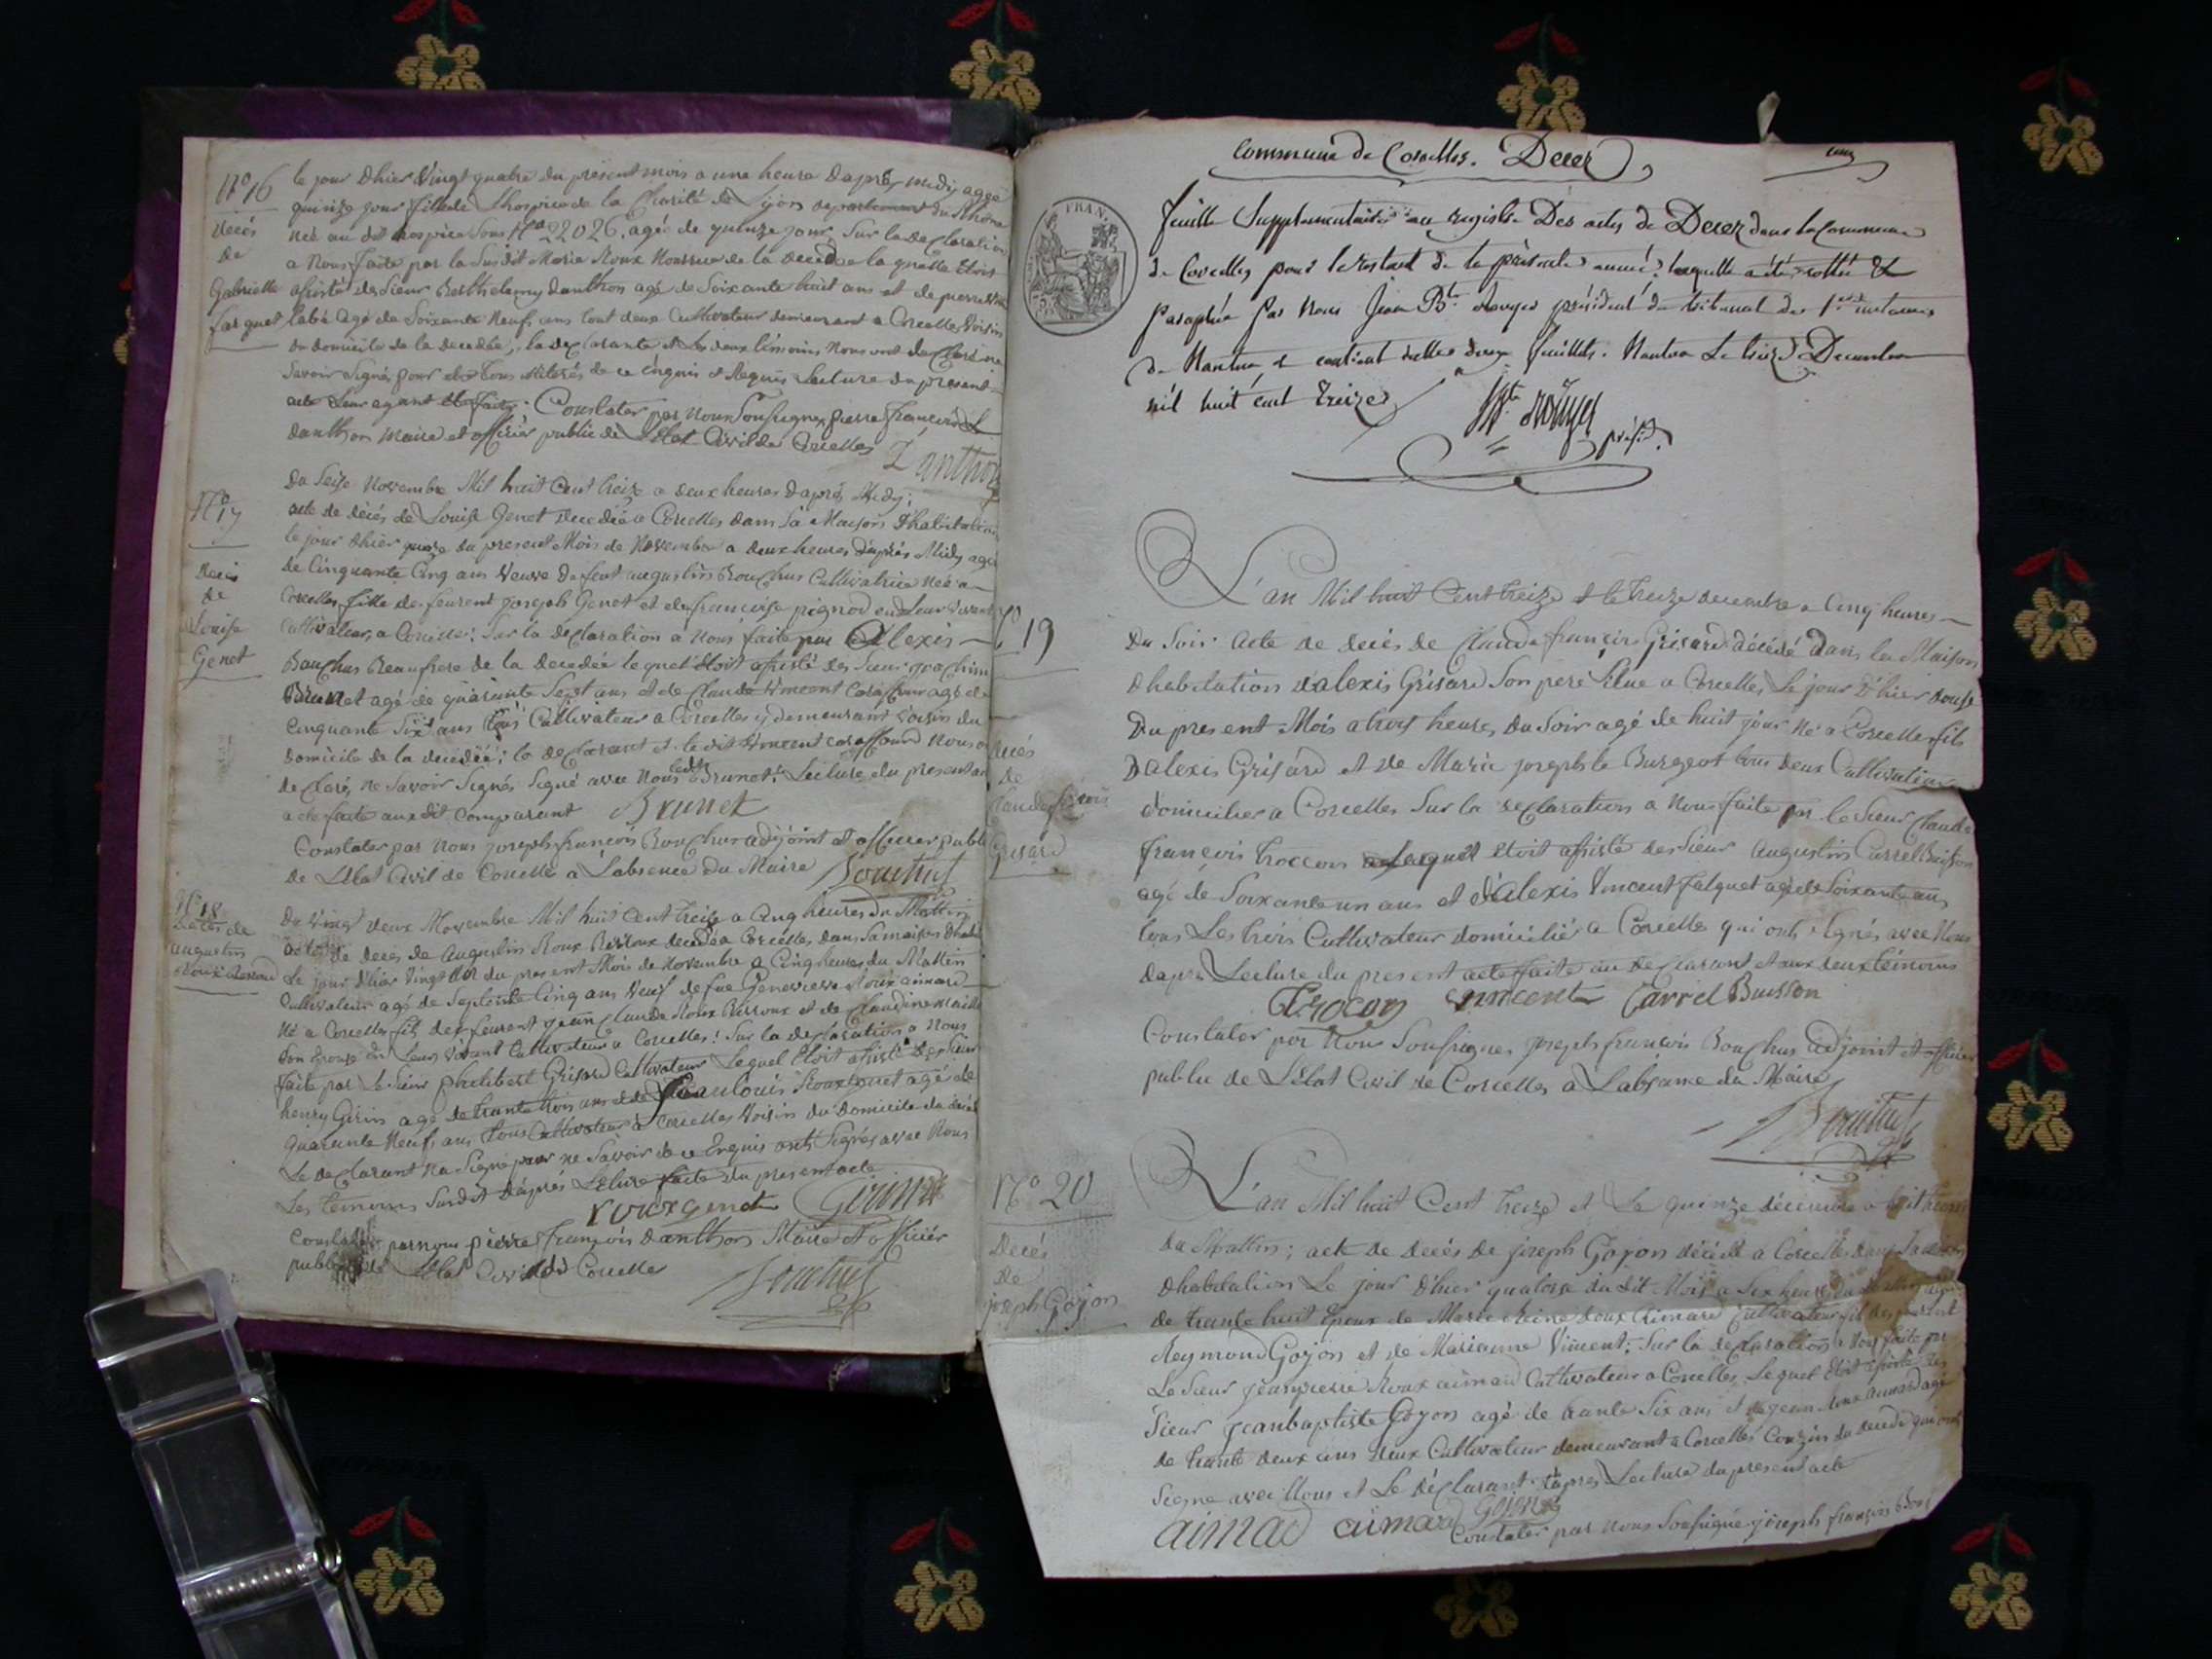 N° 16
decés
de
Gabrielle
falquet
le jour dhier vingt quatre du present mois a une heure dapres midy aggé
quinze jour fille de Lhospice de la Charité de Lyon departement du Rhône
née au dit hospice sous N° 22026, agé de quinze jour sur la declaration
a nous faite par la susdit Maria Roux Nourrice de la decedé la quelle Etois
assisté des Sieur Berthelemy danthon agé de Soixante huit ans et de pierre
labé agé de Soixante Neuf ans tout deux Cultivateur demeurant a Corcelles voisin
du domicile de la decedée, la declarante et les deux témoins nous ont declaré ne
Savoir Signés pour de ce enquis et Requis Lecture du present
acte leur ayant ete faite; Constater par Nous Soussignés pierre francois
danthon Maire et officier public de L'Etat Civil de Corcelles
Danthon
N° 17
decés
de
Louise
Genet
du Seize Novembre Mil huit Cent treize a deux heures dapres Midy;
acte de décés de Louise Genet decedée a Corcelles dans sa Maison d'habitation
le jour dhier quinze du present Mois de Novembre a deux heures d'après Midy agé
de Cinquante Cinq ans veuve de feut augustin Bouchus Cultivatrice née a
Corcelles fille de feurent joseph Genet et de francoise pignod en leur vivant
Cultivateur, a Corcelles; Sur la declaration a Nous faite par Alexis
Bouchus Beaufrere de la decedée lequel Etoit assisté des Sieur joachim
Brunet agé de quarante Sept ans et de Claude Vincent Carassour agé de
Cinquante Six ans tous Cultivateur a Corcelles y demeurant voisin du
domicile de la decedée; le declarant et le dit Vincent carassour nous ont
declaré, ne Savoir Signés Signé avec Nous ledit Brunet; Lecture du present acte
a ete faite aux dit Comparant Brunet
Constater par nous joseph francois Bouchus adjoint et officier public
de L'Etat Civil de Corcelles a L'absence du Maire Bouchus
N° 18
Decés de
augustin
Roux
du vingt deux Novembre Mil huit Cent treize a Cinq heures du Mattin
acte de deces de Augustin Roux decedé a Corcelles, dans Sa maison d'habitation
Le jour d'hier vingt un du present Mois de Novembre a Cinq heures du Mattin
Cultivateur agé de Septente Cinq ans veuf de fue Genevieve Roux aimard
Né a Corcelles fils de feurent jean Claude Roux et de Claudine
Son Epouse en Leur vivant Cultivateur a Corcelles; Sur la declaration a Nous
faite par le Sieur philibert Grisard Cultivateur Lequel Etoit assisté des Sieur
henry Girin agé de trante trois ans et de jean louis Roux Genet agé de
quarante Neuf ans tous Cultivateur a Corcelles voisin du domicile du decedé
Le declarant na Signé pour ne Savoir de ce Enquis ont Signés avec Nous
Les temoins Susdit d'après Lecture faite du present acte
roux genet Girin
Constater par nous pierre francois danthon Maire et officier
public de L'Etat Civil de Corcelles
Bouchus
Commune de Corcelles. Decez
feuille Supplementaire au registre Des actes de Decez dans la Commune
de Corcelles pour le restant de la présente année, laquelle a été cottée &
Paraphée par Nous Jean Bte Rouyer président du tribunal de 1ere instance
de Nantua & contient deux feuillets. Nantua Le treize Decembre
mil huit cent treize
Bte Rouyer
présid.
N° 19
Decés
de
Claude francois
Grisard
L'an Mil huit Cent treize et le treize decembre a Cinq heures
du Soir. Acte de decés de Claude françois Grisard décédé dans la Maison
dhabitation d'alexis Grisard Son pere Situé a Corcelles, le jour d'hier douze
du present Mois a trois heures du Soir agé de huit jour né a Corcelles fils
D'alexis Grisard et de Marie josephte Burgeot tous deux Cultivateur
domicilier a Corcelles Sur la declaration a nous faite par le Sieur Claude
françois troccon lequel etoit assisté des Sieur Augustin Carrel Buisson
agé de Soixante un ans et d'alexis Vincent falquet agé de Soixante ans
tous Les trois Cultivateur domicilié a Corcelles qui ont Signés avec Nous
dapre Lecture du present acte faite au declarant et aux deux témoins
Trocon vincent Carrel Buisson
Constater par Nous Soussignes joseph francois Bouchus adjoint et officier
public de L'Etat Civil de Corcelles a L'absance du Maire
Bouchus
N° 20
Decés
de
joseph Gojon
L'an Mil huit Cent treize et Le quinze décembre a huit heures
du Mattin; acte de decés de joseph Gojon décédé a Corcelles dans Sa maison
dhabitation Le jour d'hier quatorze du dit Mois a Six heures du Mattin agé
de trante huit Epoux de Marie Reine Roux Aimard Cultivateur fils de
Reymond Gojon et de Marianne Vincent; Sur la declaration a Nous faite par
Le Sieur jeanpierre Roux aimard Cultivateur a Corcelles, Lequel Etoit assisté des
Sieur jeanbaptiste Gojon agé de trante Six ans et de jean Roux aimard agé
de trante deux ans deux Cultivateur demeurant a Corcelles Couzin du decedé qui ont
Signé avec Nous et Le déclarant d'apres Lecture du present acte
aimad aimard Gojon
Constater par nous Soussigné joseph françois